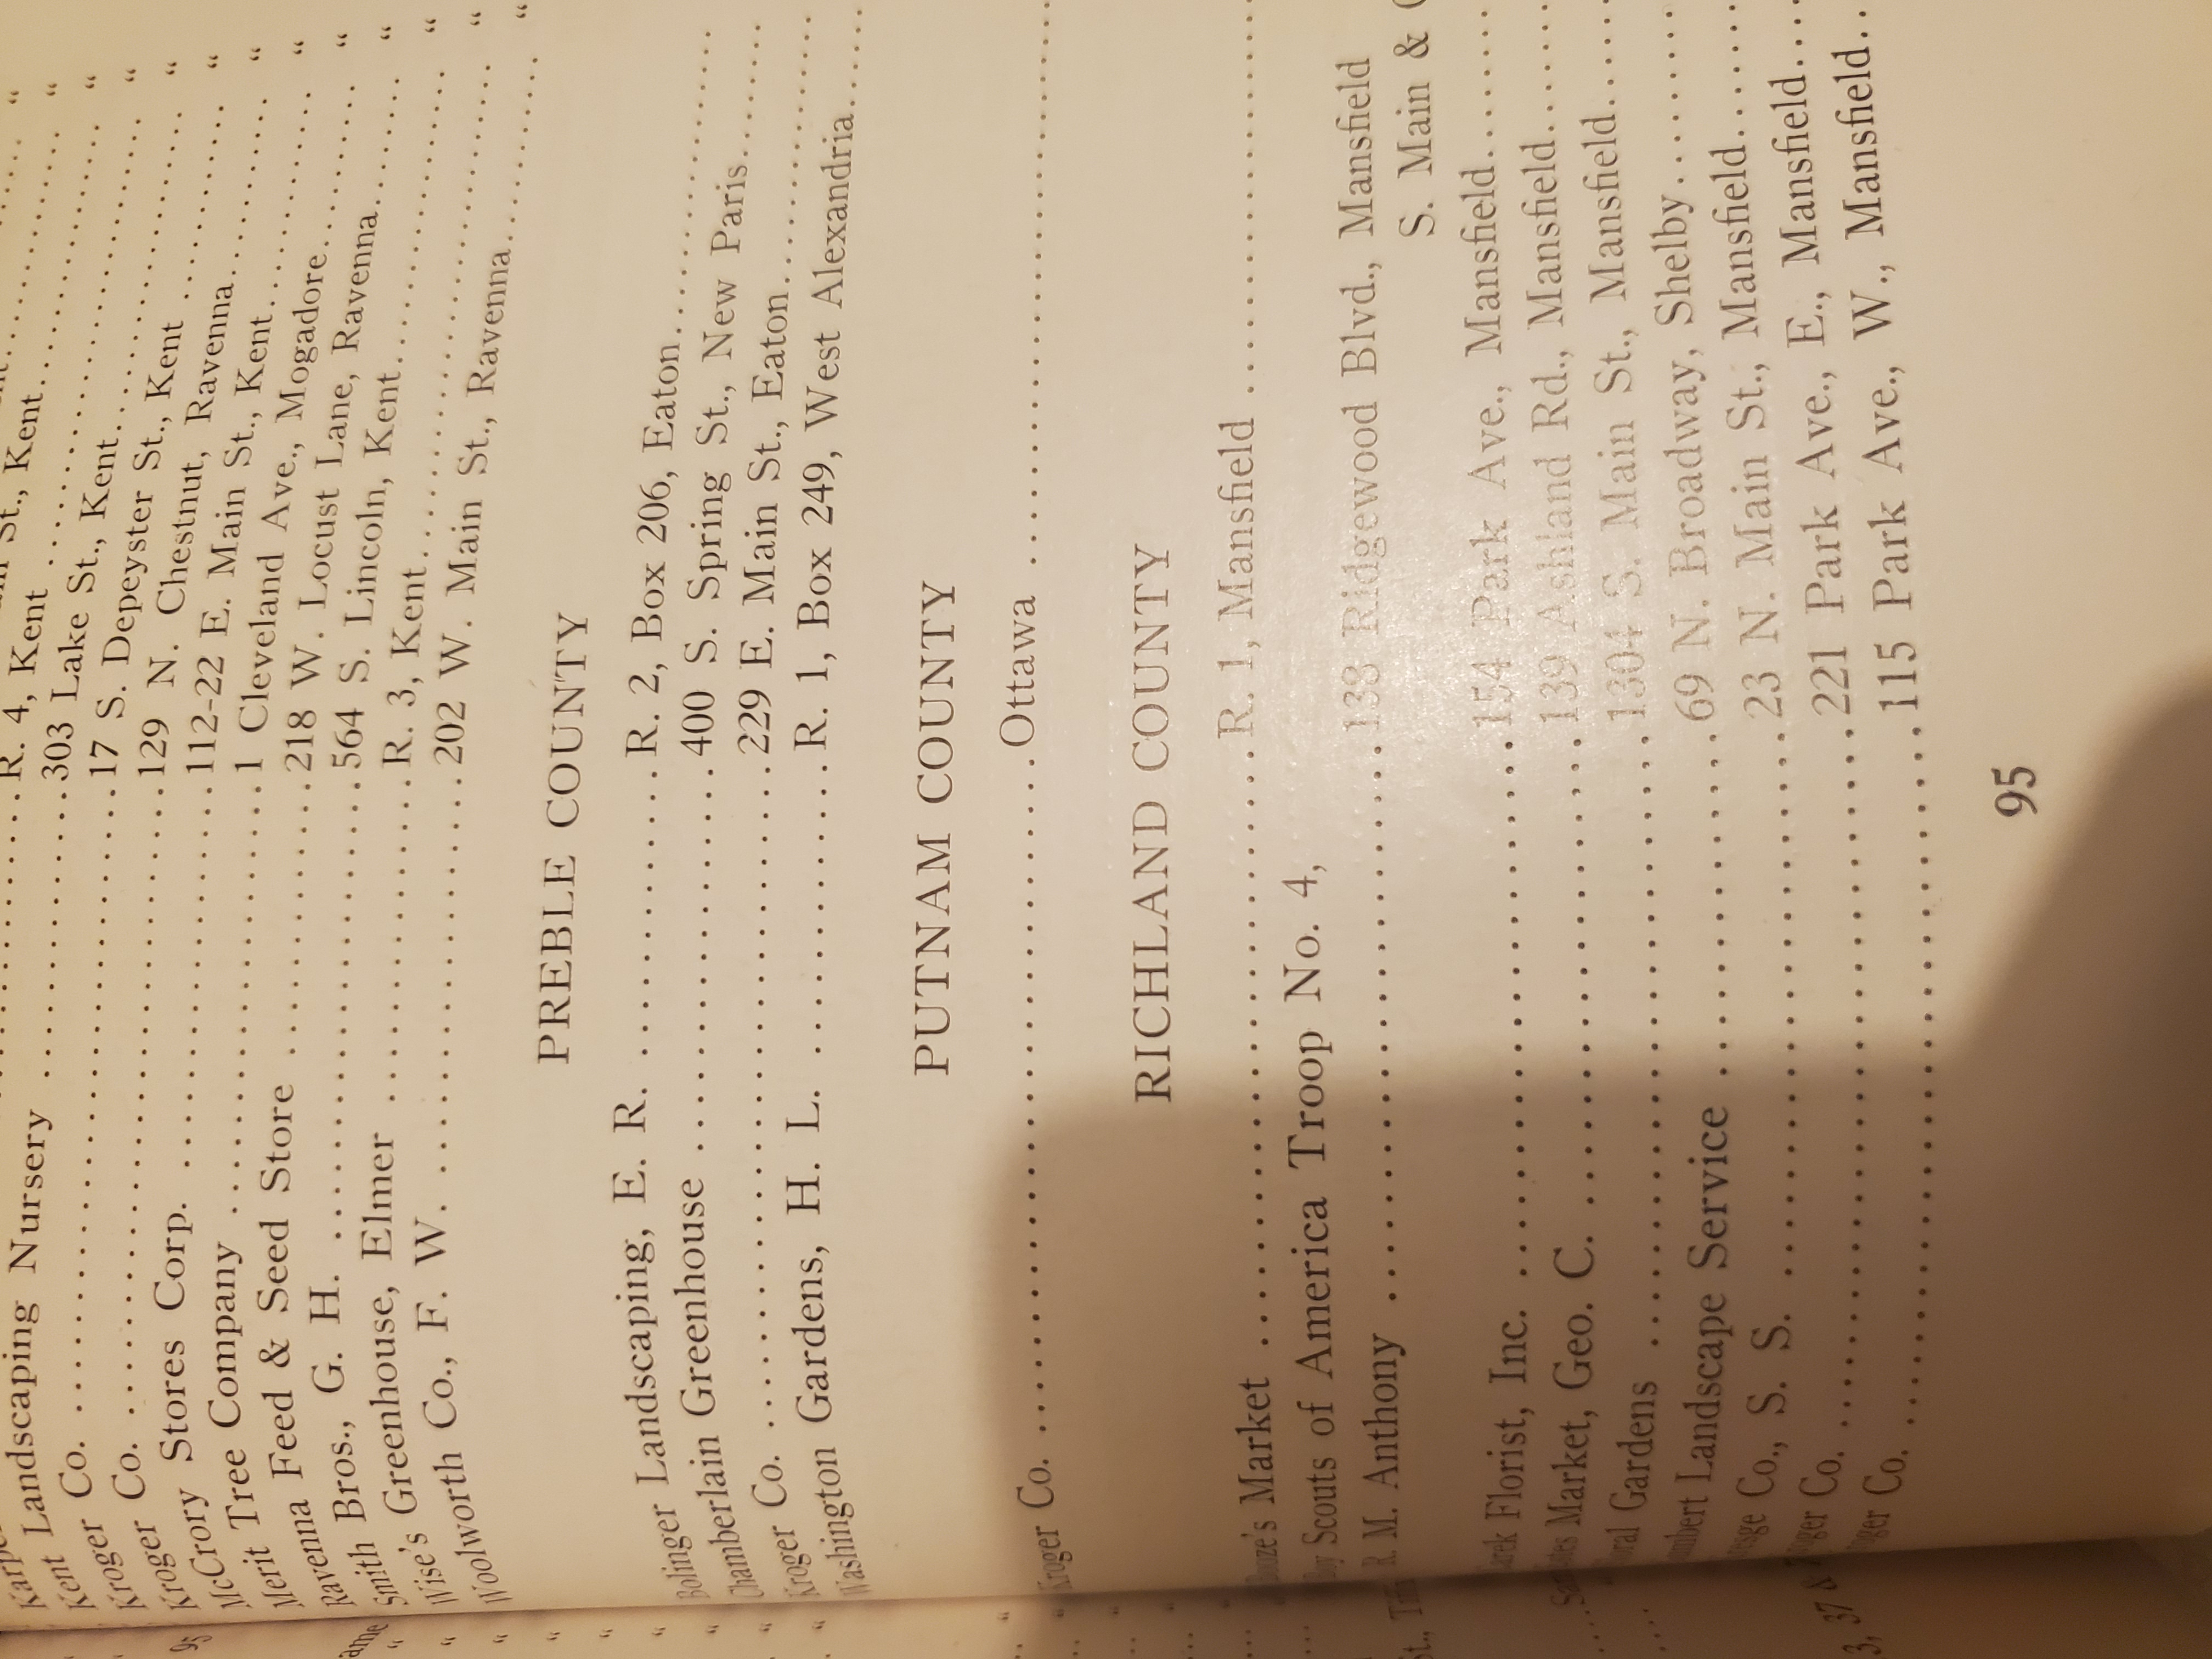 St., Kent
R. 4, Kent
Kent Landscaping Nursery 303 Lake St., Kent "
Kroger Co. 17 S. Depeyster St., Kent "
Kroger Co. 129 N. Chestnut, Ravenna "
McCrory Stores Corp. 112-22 E. Main St., Kent "
Merit Tree Company 1 Cleveland Ave., Mogadore "
Ravenna Feed & Seed Store 218 W. Locust Lane, Ravenna "
Smith Bros., G. H. 564 S. Lincoln, Kent "
Wise's Greenhouse, Elmer R. 3, Kent "
Woolworth Co., F. W. 202 W. Main St., Ravenna "
PREBLE COUNTY
Bolinger Landscaping, E. R. R. 2, Box 206, Eaton
Chamberlain Greenhouse 400 S. Spring St., New Paris
Kroger Co. 229 E. Main St., Eaton
Washington Gardens, H. L. R. 1, Box 249, West Alexandria
PUTNAM COUNTY
Kroger Co. Ottawa
RICHLAND COUNTY
Market R. 1, Mansfield
Scouts of America Troop No. 4,
R. M. Anthony 138 Ridgewood Blvd., Mansfield
S. Main &
Florist, Inc. 154 Park Ave., Mansfield
Market, Geo. C. 139 Ashland Rd., Mansfield
Gardens 1304 S. Main St., Mansfield
Landscape Service 69 N. Broadway, Shelby
Co., S. S. 23 N. Main St., Mansfield
Co. 221 Park Ave., E., Mansfield
Co. 115 Park Ave., W., Mansfield
95